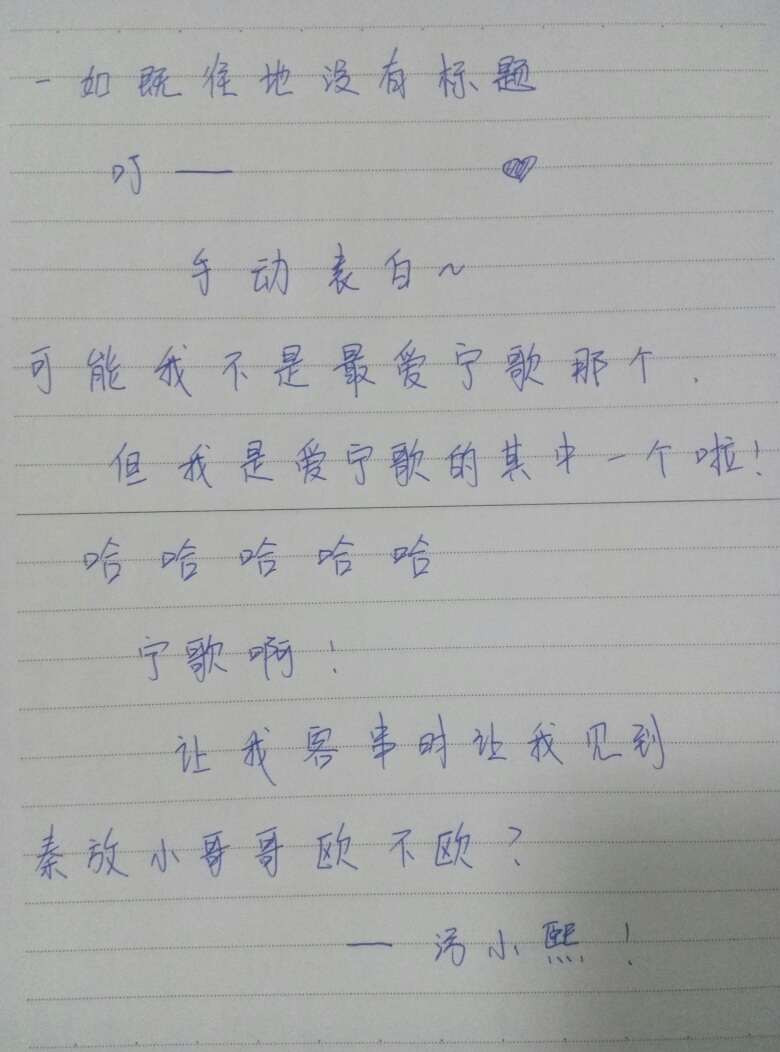 一如既往地没有标题
叮——
手动表白~
可能我不是最爱宁歌那个.
但我是爱宁歌的其中一个啦!
哈哈哈哈哈
宁歌啊!
让我客串时让我见到
秦放小哥哥欧不欧?
——汤小熙!